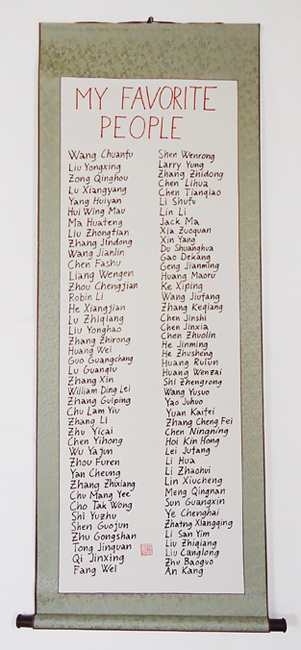 MY FAVORITE
PEOPLE
Wang Chuanfu
Liu Yongxing
Zong Qinghou
Lu Xiangyang
Yang Huiyan
Hui Wing Mau
Ma Huateng
Liu Zhongtian
Zhang Jindong
Wang Jianlin
Chen Fashu
Liang Wengen
Zhou Chengjian
Robin Li
He Xiangjian
Lu Zhiqiang
Liu Yonghao
Zhang Zhirong
Huang Wei
Guo Guangchang
Lu Guanqiu
Zhang Xin
William Ding Lei
Zhang Guiping
Chu Lam Yiu
Zhang Li
Zhu Yicai
Chen Yihong
Wu Yajun
Zhou Furen
Yan Cheung
Zhang Zhixiang
Chu Mang Yee
Cho Tak Wong
Shi Yuzhu
Shen Guojun
Zhu Gongshan
Tong Jinquan
Qi Jinxing
Fang Wei
Shen Wenrong
Larry Yung
Zhang Zhidong
Chen Lihua
Chen Tianqiao
Li Shufu
Lin Li
Jack Ma
Xia Zuoquan
Xin Yang
Du Shuanghua
Gao Dekang
Geng Jianming
Huang Maoru
Ke Xiping
Wang Jiufang
Zhang Keqiang
Chen Jinshi
Chen Jinxia
Chen Zhuolin
He Jinming
He Zhusheng
Huang Ruilun
Huang Wenzai
Shi Zhengrong
Wang Yusuo
Yao Juhuo
Yuan Kaifei
Zhang Cheng Fei
Chen Ningning
Hoi Kin Hong
Lei Jufang
Li Hua
Li Zhaohui
Lin Xiucheng
Meng Qingnan
Sun Guangxin
Ye Chenghai
Zhatng Xiangqing
Li San Yim
Liu Zhiqiang
Liu Canglong
Zhu Baoguo
An Kang